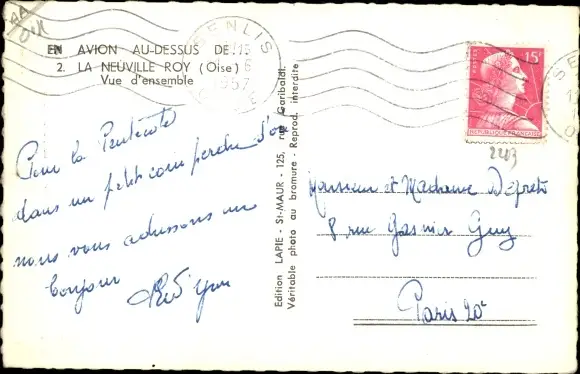 EN AVION AU-DESSUS DE...
2. LA NEUVILLE ROY (Oise)
Vue d'ensemble
SENLIS
1957
15F
REPUBLIQUE FRANÇAISE
SENLIS
2203
Pour la Pentecôte
dans un petit coin perdu d'
nous vous adressons un
bonjour
Edition LAPIE - St-MAUR - 125, rue Garibaldi.
Véritable photo au bromure - Reprod. interdite
Monsieur et Madame Deprets
8 rue Gasnier Guy
Paris 20e